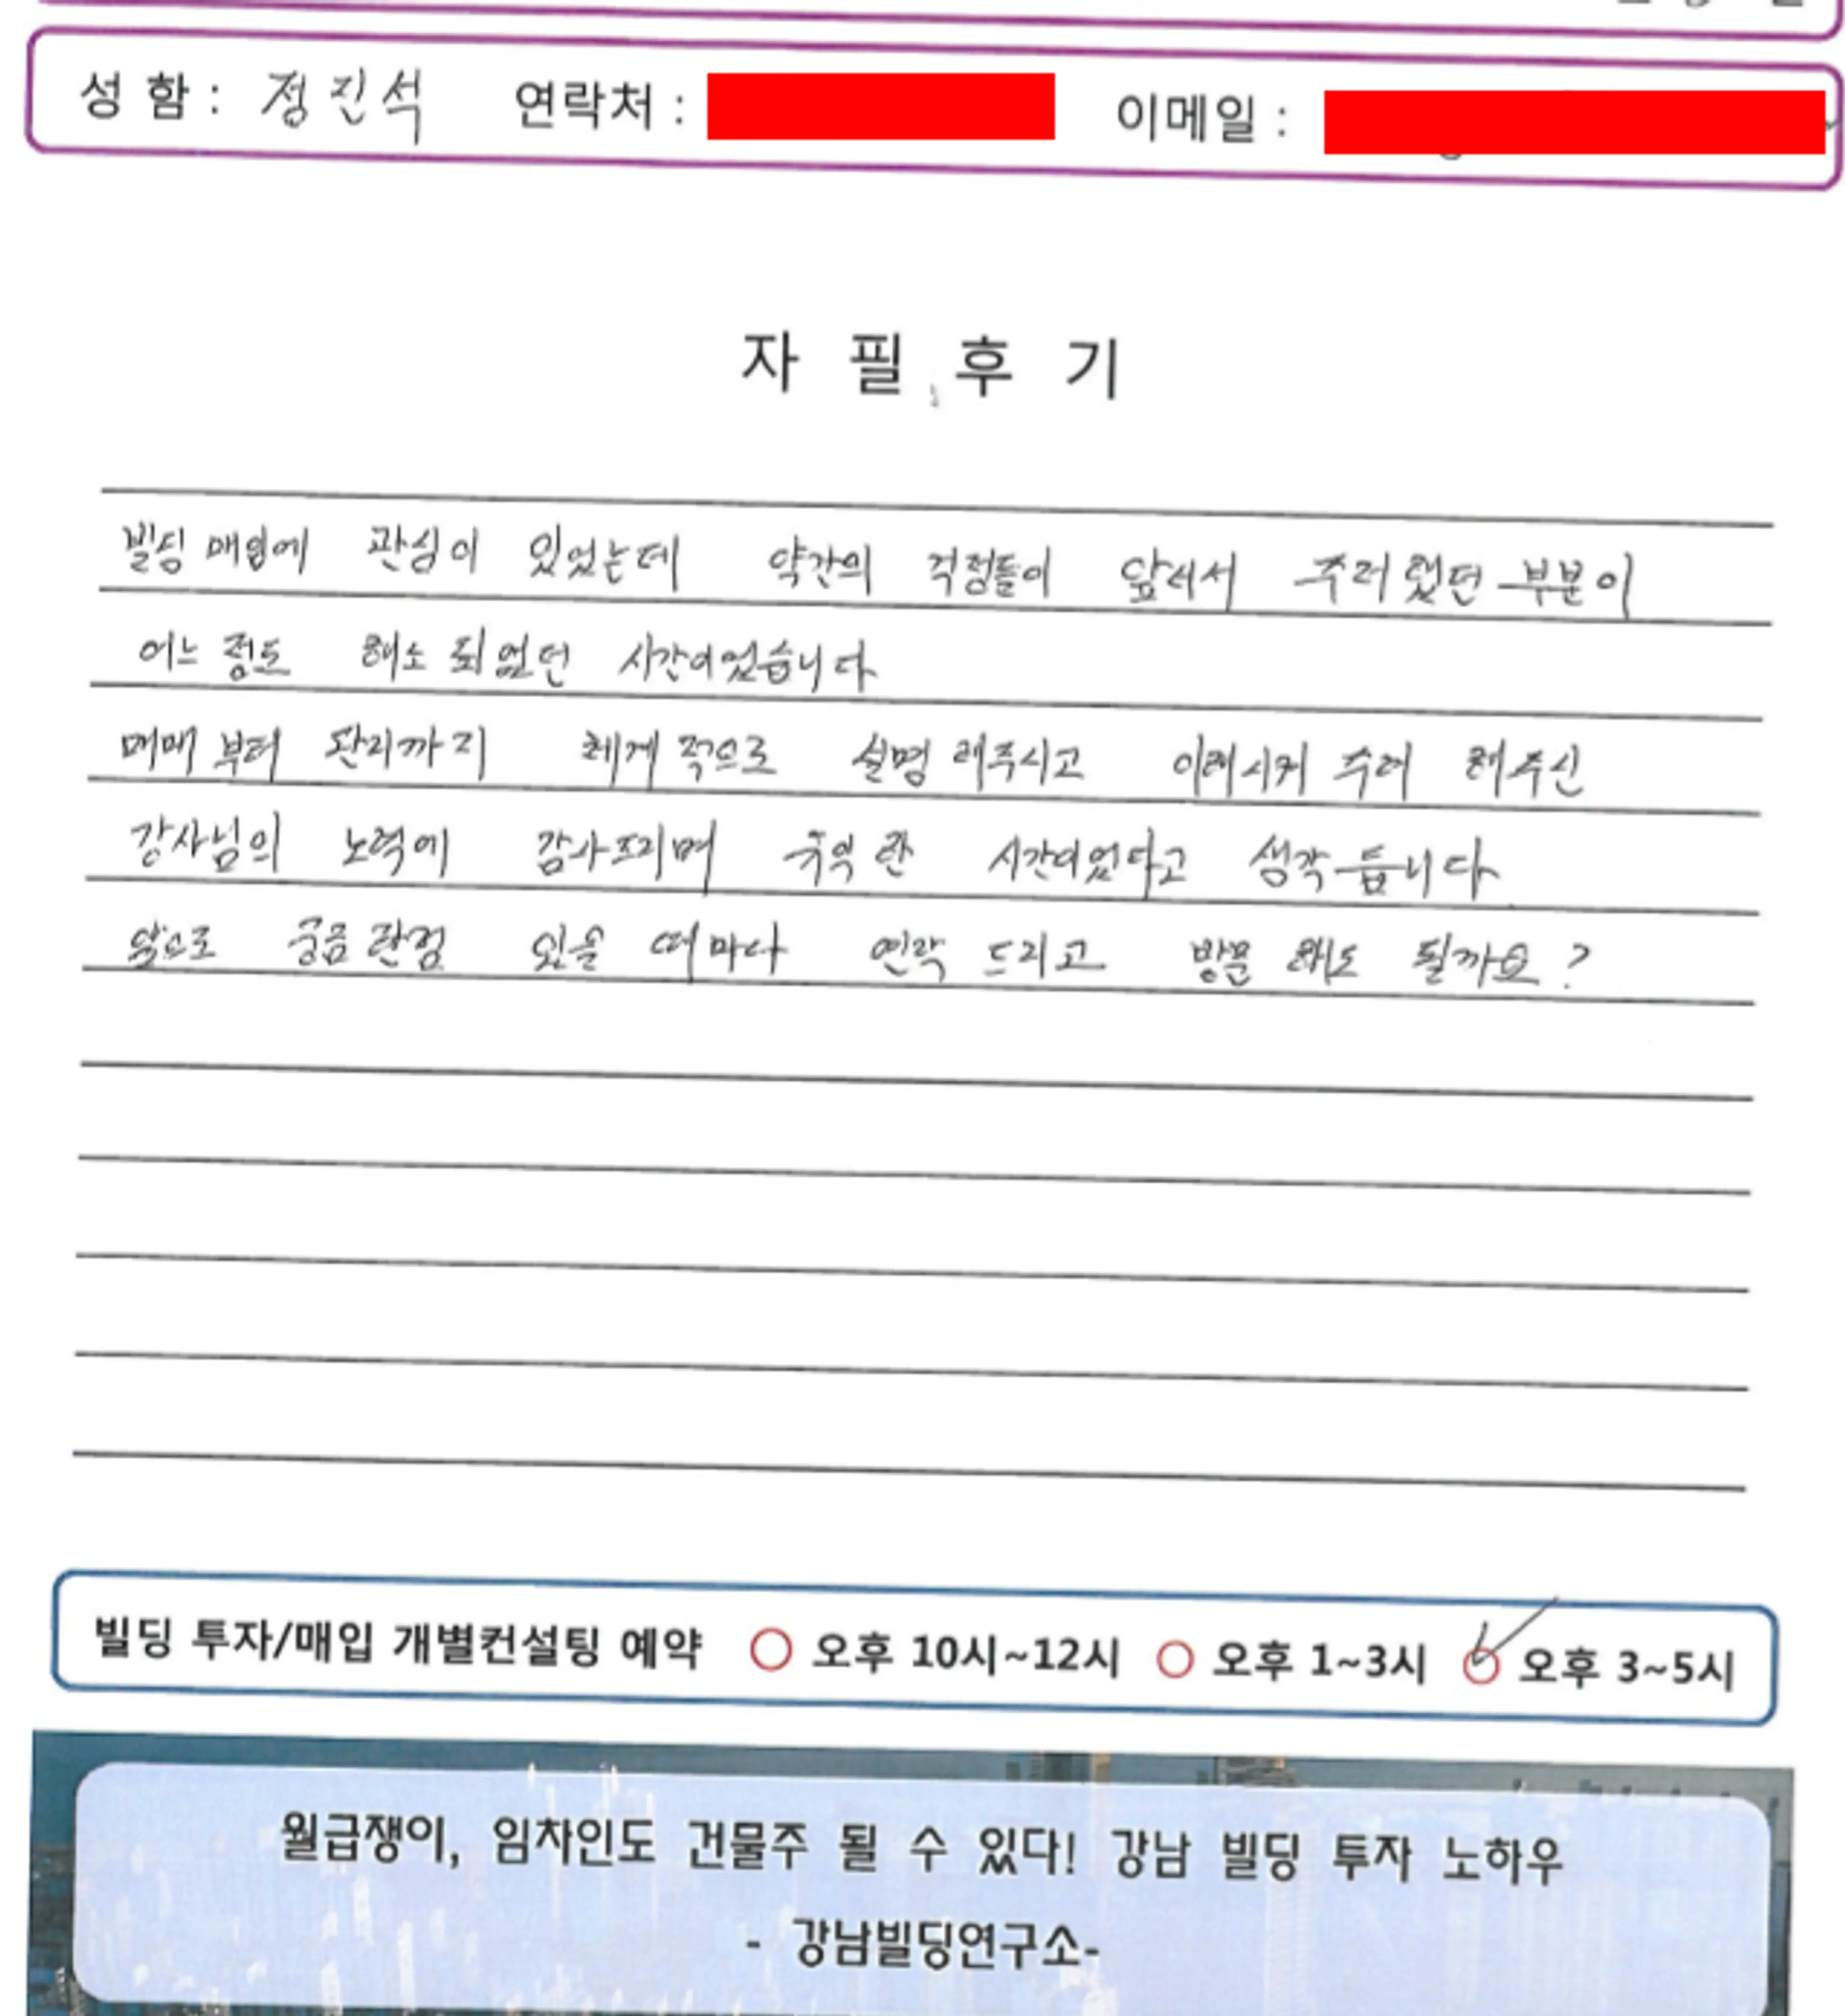 성 함 : 정진석 연락처 : 이메일 :
자 필 후 기
빌딩 매입에 관심이 있었는데 약간의 걱정들이 앞서서 주저했던 부분이
어느 정도 해소 되었던 시간이었습니다
매매 부터 관리까지 체계적으로 설명 해주시고 이해시켜 주려 해주신
강사님의 노력에 감사드리며 유익한 시간이었다고 생각듭니다
앞으로 궁금한점 있을 때마다 연락 드리고 방문 해도 될까요?
빌딩 투자/매입 개별컨설팅 예약 오후 10시~12시 오후 1~3시 오후 3~5시
월급쟁이, 임차인도 건물주 될 수 있다! 강남 빌딩 투자 노하우
- 강남빌딩연구소-